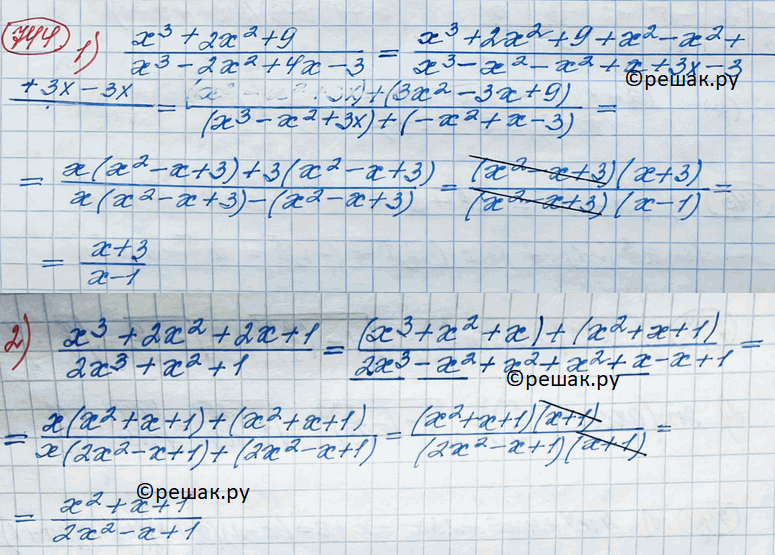 744 1) (x³+2x²+9)/(x³-2x²+4x-3) = (x³+2x²+9+x²-x²+)/(x³-x²-x²+x+3x-3)
©решак.ру
+3x-3x = +(3x²-3x+9)/((x³-x²+3x)+(-x²+x-3)) =
= (x(x²-x+3)+3(x²-x+3))/(x(x²-x+3)-(x²-x+3)) = ((x²-x+3)(x+3))/((x²-x+3)(x-1)) =
= (x+3)/(x-1)
2) (x³+2x²+2x+1)/(2x³+x²+1) = ((x³+x²+x)+(x²+x+1))/(2x³-x²+x²+x²+x-x+1) =
©решак.ру
= (x(x²+x+1)+(x²+x+1))/(x(2x²-x+1)+(2x²-x+1)) = ((x²+x+1)(x+1))/((2x²-x+1)(x+1)) =
©решак.ру
= (x²+x+1)/(2x²-x+1)